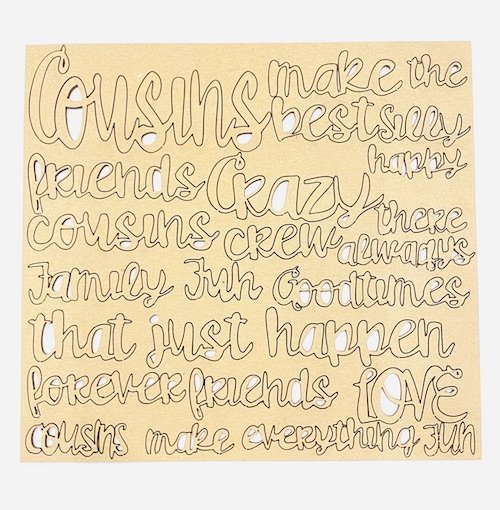 Cousins make the
best silly
happy
friends Crazy
cousins crew there
always
Family Fun Goodtimes
that just happen
forever friends LOVE
cousins make everything Fun